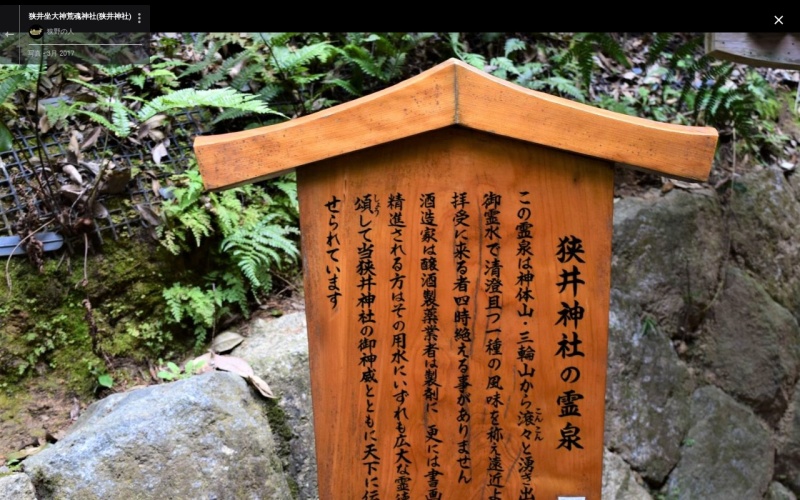 狭井坐大神荒魂神社(狭井神社)
狭野の人
写真 - 3月 2017
狭井神社の霊泉
この霊泉は神体山・三輪山から滾々と湧き出
こんこん
御霊水で清澄且つ一種の風味を称え遠近よ
拝受に来る者四時絶える事がありません
酒造家は醸酒製薬業者は製剤に 更には書画
精進される方はその用水にいずれも広大な霊
頌して当狭井神社の御神威とともに天下に伝
しょう
せられています